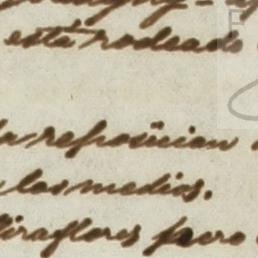 está rodeado
la reposicion
los medios.
Miraflores pero